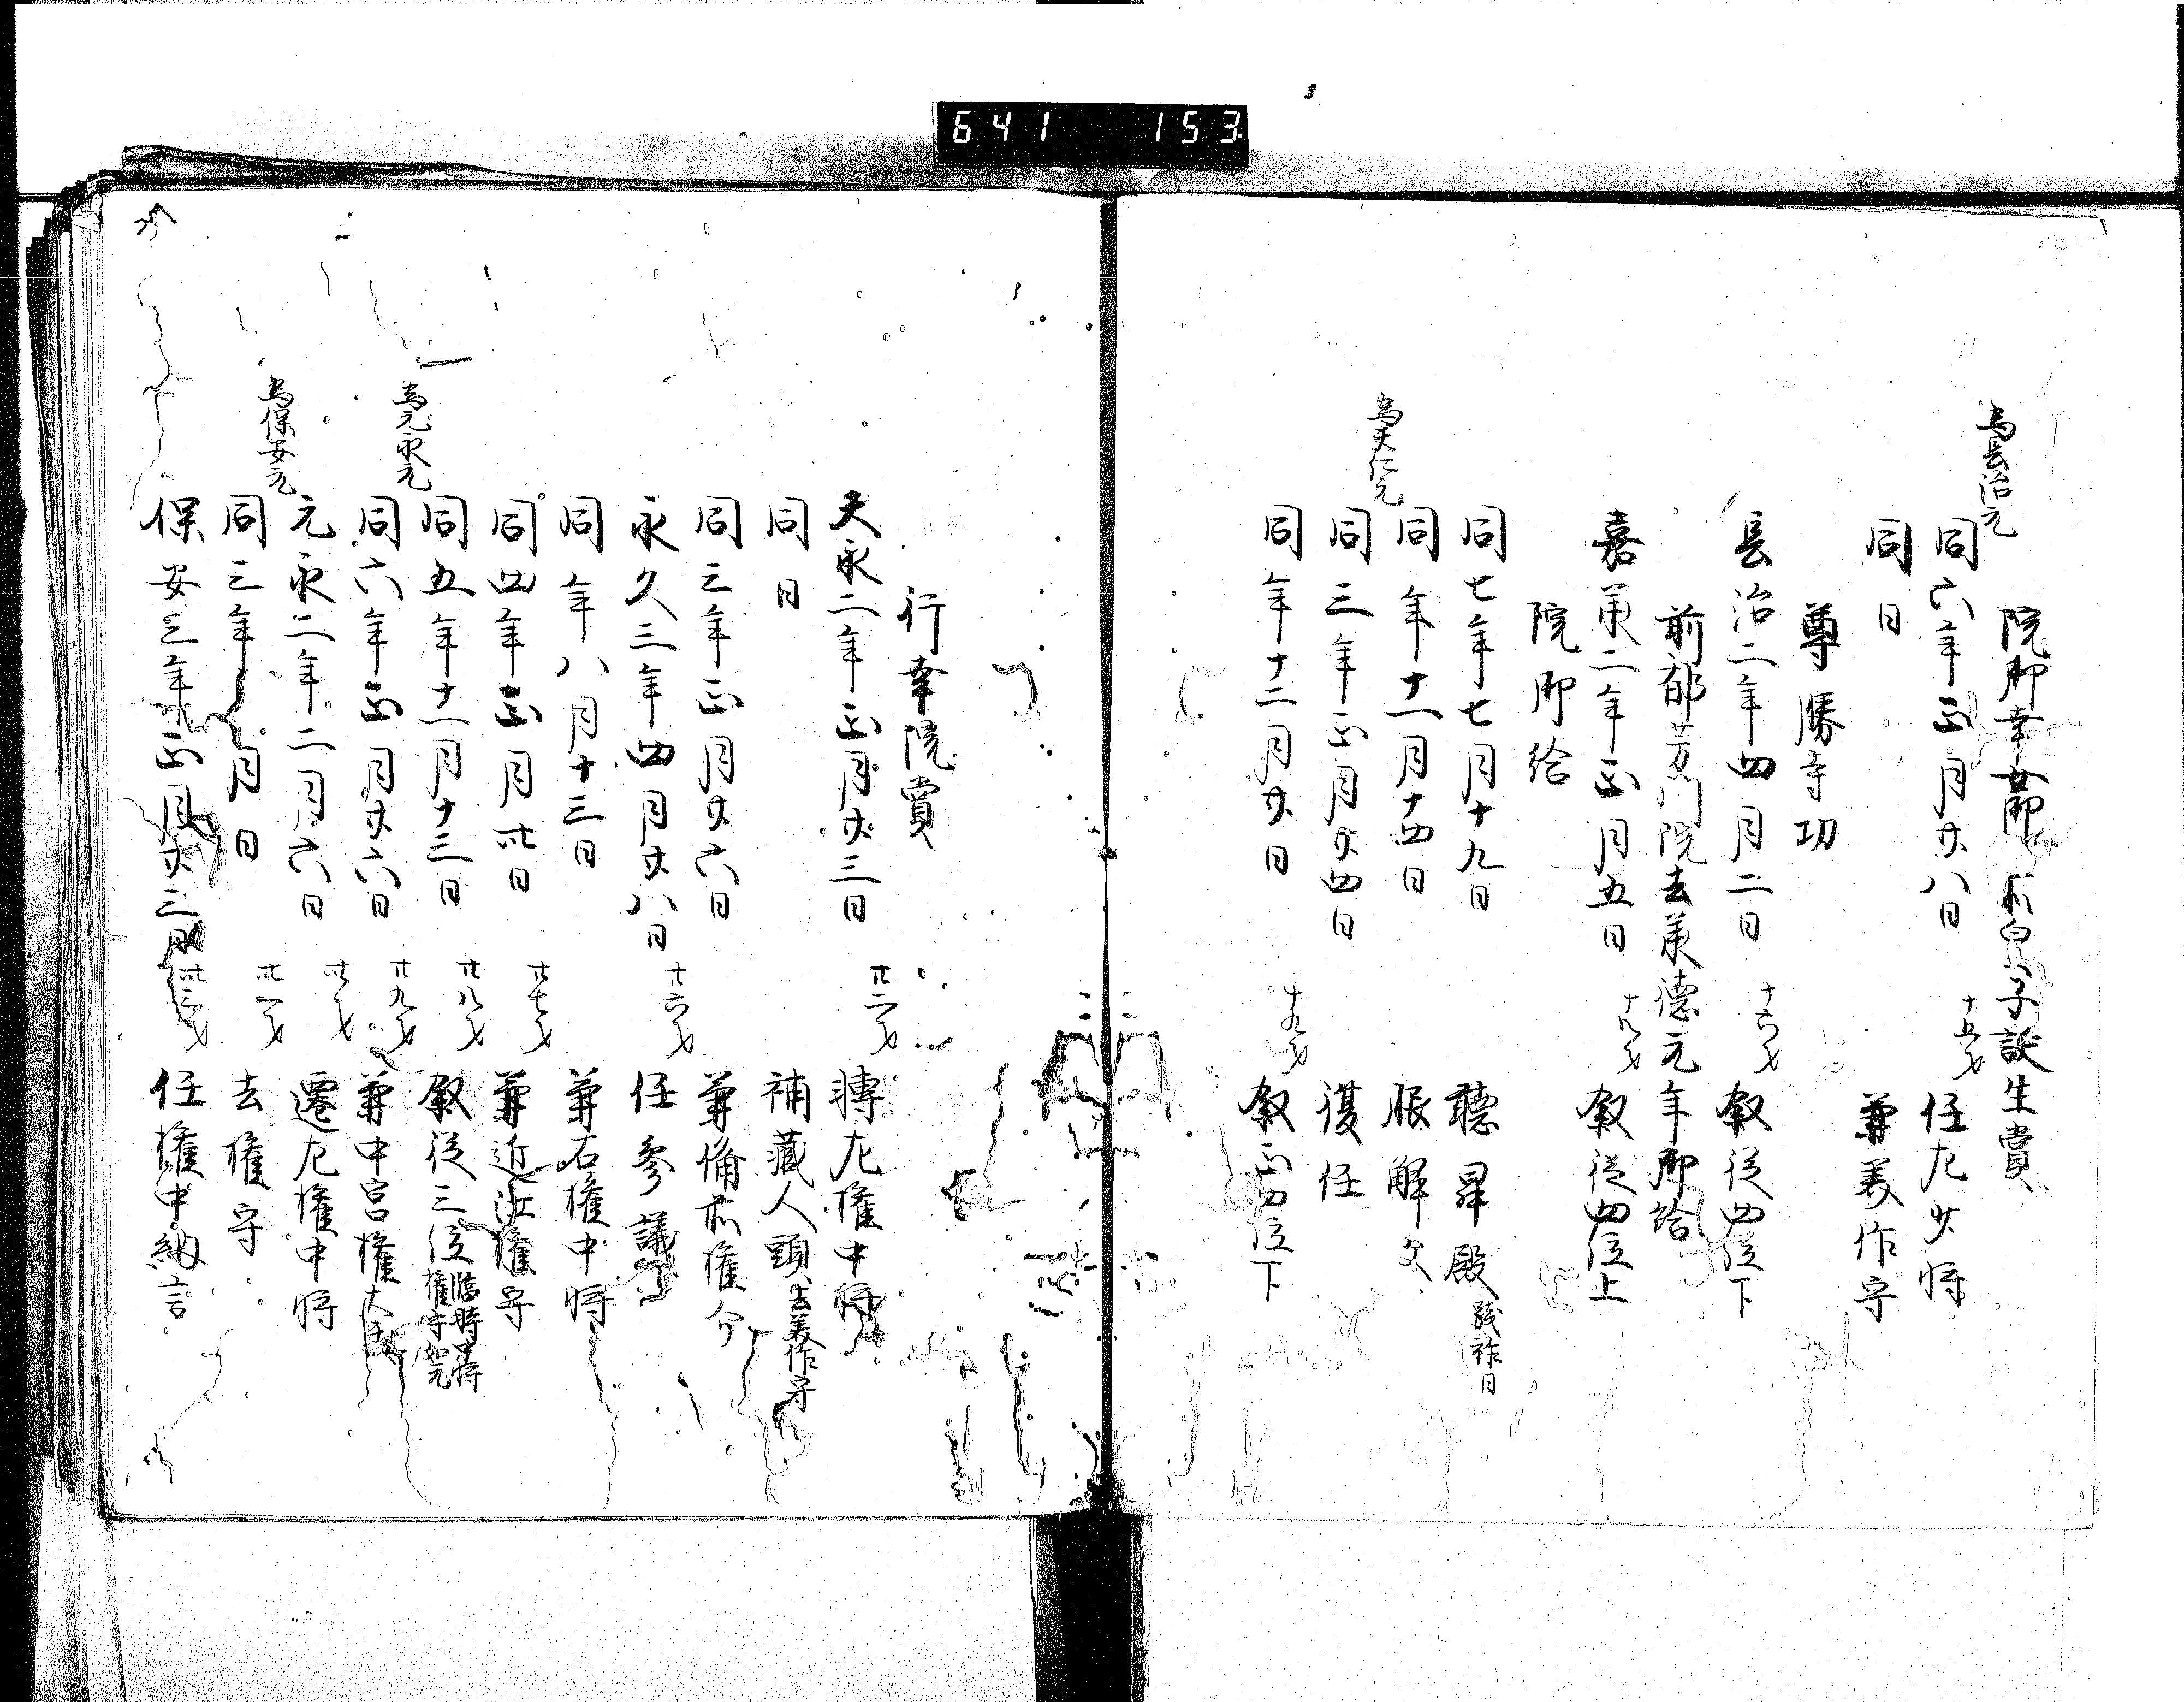 641 153
院御幸女御 皇子誕生賞
為長治元
同六年正月廿八日 十五才 任左少将
同日 兼美作守
尊勝寺功
長治二年四月二日 十六才 叙従四位下
前郁芳門院去承徳元年御給
嘉承二年正月五日 十八才 叙従四位上
院御給
同七年七月十九日 聴昇殿 践祚日
同年十一月十四日 服解父
為天仁元
同三年正月廿四日 復任
同年十二月廿日 十九才 叙正四位下
行幸院賞
天永二年正月廿三日 廿二才 転左権中将
同日 補蔵人頭 去美作守
同三年正月廿六日 兼備前権介
永久三年四月廿八日 廿六才 任参議
同年八月十三日 兼右権中将
同四年正月卅日 廿七才 兼近江権守
同五年十一月十三日 廿八才 叙従三位 臨時中将権守如元
為元永元
同六年正月廿六日 廿九才 兼中宮権大夫
元永二年二月六日 卅才 遷左権中将
為保安元
同三年 月 日 卅一才 去権守
保安三年正月廿三日 卅三才 任権中納言